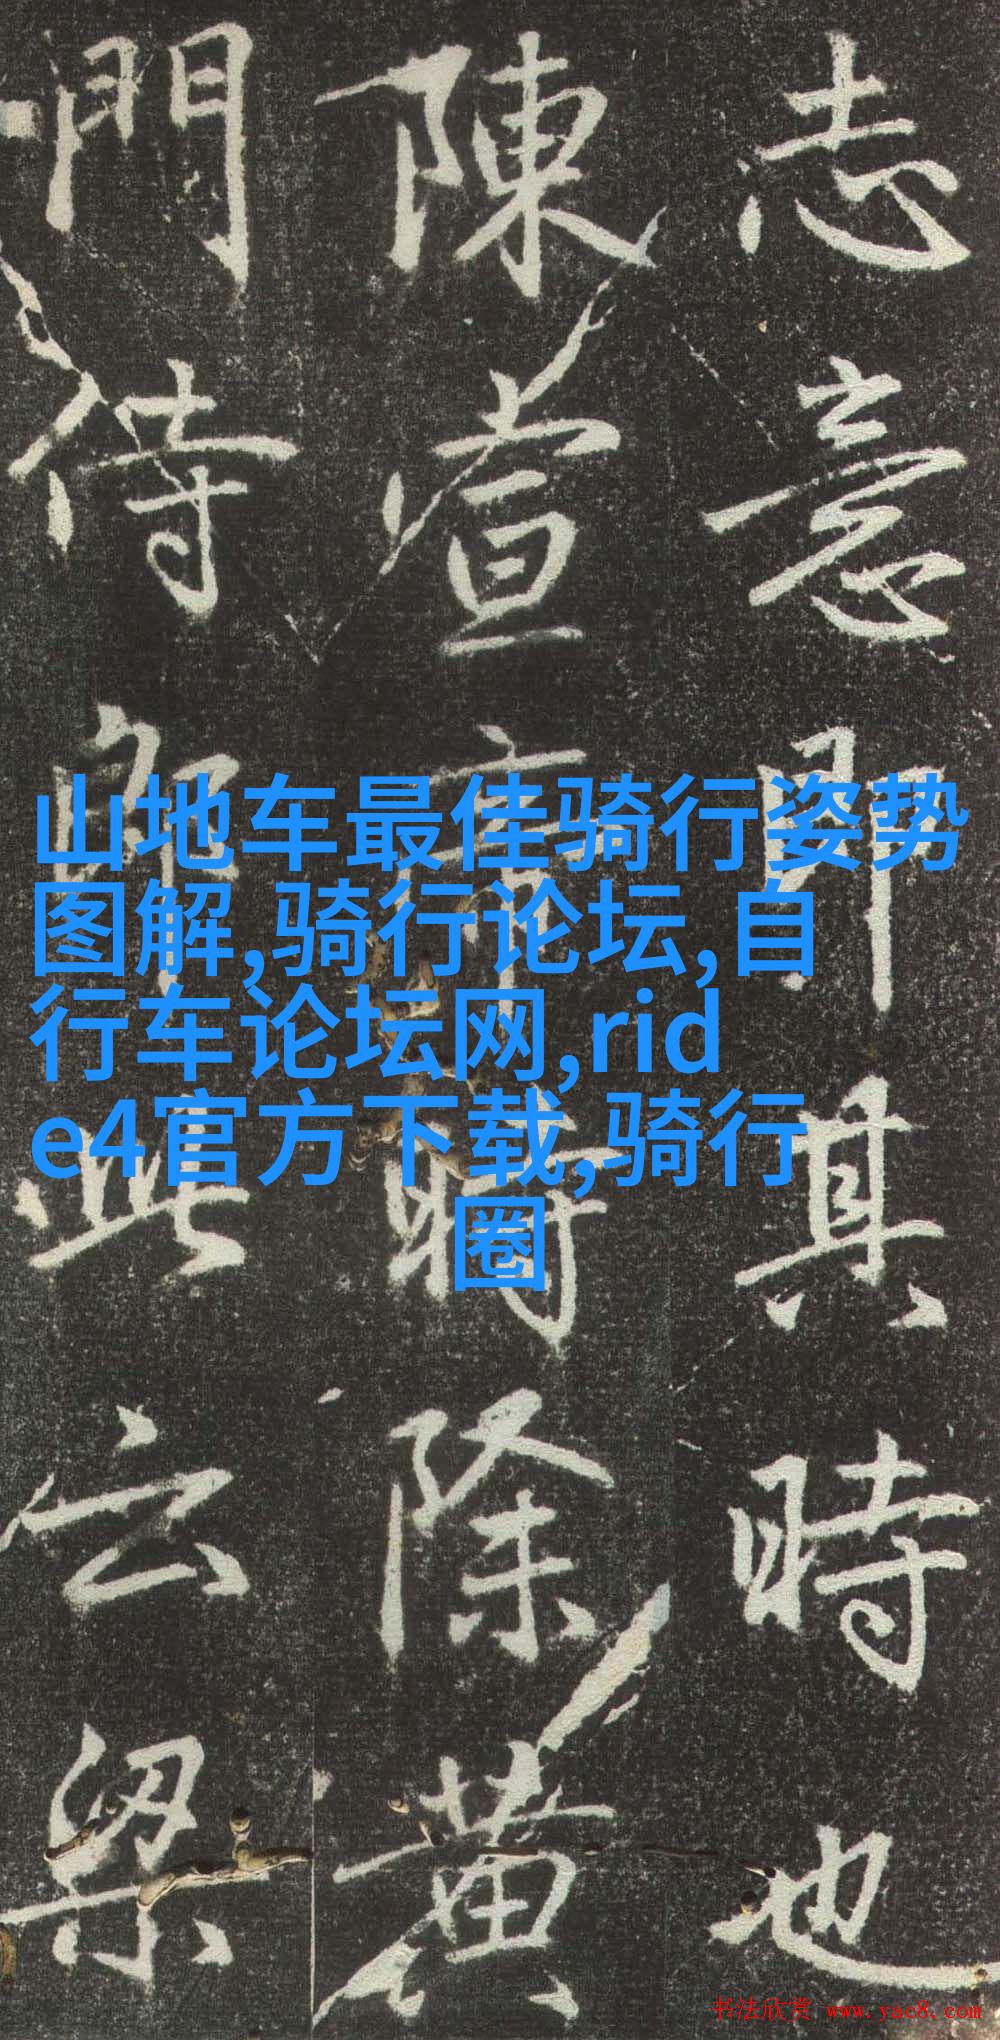 志意即其時也
陳宣帝時除黄
門侍郎此云梁
山地车最佳骑行姿势
图解,骑行论坛,自
行车论坛网,rid
e4官方下载,骑行
圈
书法欣赏 www.yac8.com